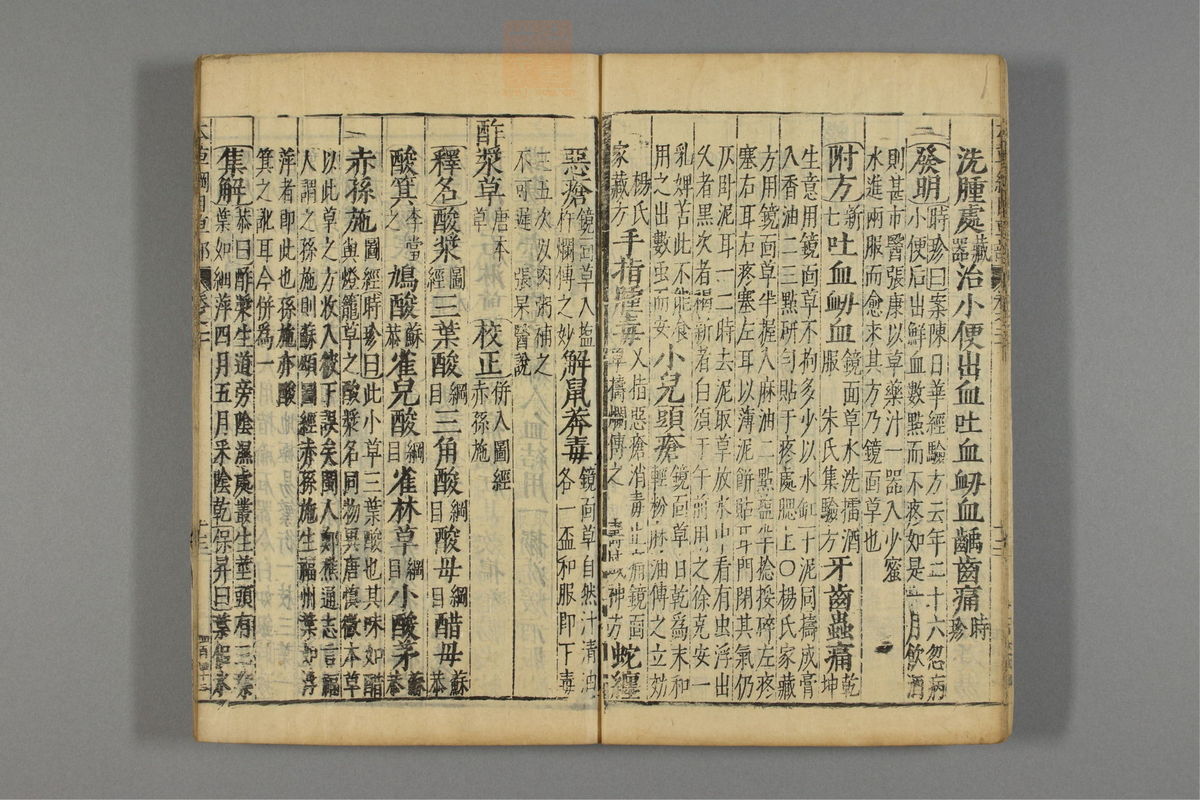 洗腫處藏器治小便出血吐血衂血齲齒痛時珍
發明時珍曰案陳日華經驗方云年二十六忽病
小便后出鮮血數點而不疼如是一月飲酒
則甚市醫張康以草藥汁一器入少蜜
水進兩服而愈求其方乃鏡面草也
附方新七吐血衂血鏡面草水洗擂酒服 朱氏集驗方牙齒蟲痛乾坤
生意用鏡面草不拘多少以水缸下泥同擣成膏
入香油二三點研勻貼于疼處腮上○楊氏家藏
方用鏡面草半握入麻油二點鹽半捻挼碎左疼
塞右耳右疼塞左耳以薄泥餅貼耳門閉其氣仍
仄卧泥耳一二時去泥取草放水中看有虫浮出
久者黑次者褐新者白須于午前用之徐克安一
乳婢苦此不能食
用之出數虫而安小兒頭瘡鏡面草日乾爲末和輕粉麻油傅之立効
楊氏家藏方手指腫毒又指惡瘡消毒止鏡面草擣爛傅之 神方蛇纏
惡瘡鏡面草入塩杵爛傅之妙解鼠莽毒鏡面草自然汁清油各一盃和服即下毒
三五次以肉粥補之
不可遲 張杲醫說
酢漿草唐本草 校正併入圖經赤孫施
釋名酸漿圖經三葉酸綱目三角酸綱目酸母綱目醋母蘇恭
酸箕李當之鳩酸蘇恭雀兒酸綱目雀林草綱目小酸茅蘇恭
赤孫施圖經時珍曰此小草三葉酸也其味如醋
與燈籠草之酸漿名同物異唐慎微本草
以此草之方收入彼下誤矣閩人鄭樵通志言福
人謂之孫施則蘇頌圖經赤孫施生福州葉如浮
萍者即此也孫施亦酸
箕之訛耳今併爲一
集解恭曰酢漿生道旁陰濕處叢生莖頭有三葉
葉如細萍四月五月采陰乾保昇曰葉似水